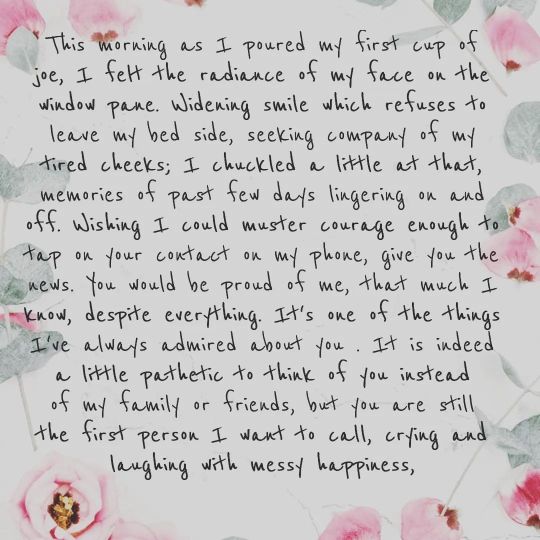 This morning as I poured my first cup of
joe, I felt the radiance of my face on the
window pane. Widening smile which refuses to
leave my bed side, seeking company of my
tired cheeks; I chuckled a little at that,
memories of past few days lingering on and
off. Wishing I could muster courage enough to
tap on your contact on my phone, give you the
news. You would be proud of me, that much I
know, despite everything. It's one of the things
I've always admired about you . It is indeed
a little pathetic to think of you instead
of my family or friends, but you are still
the first person I want to call, crying and
laughing with messy happiness,